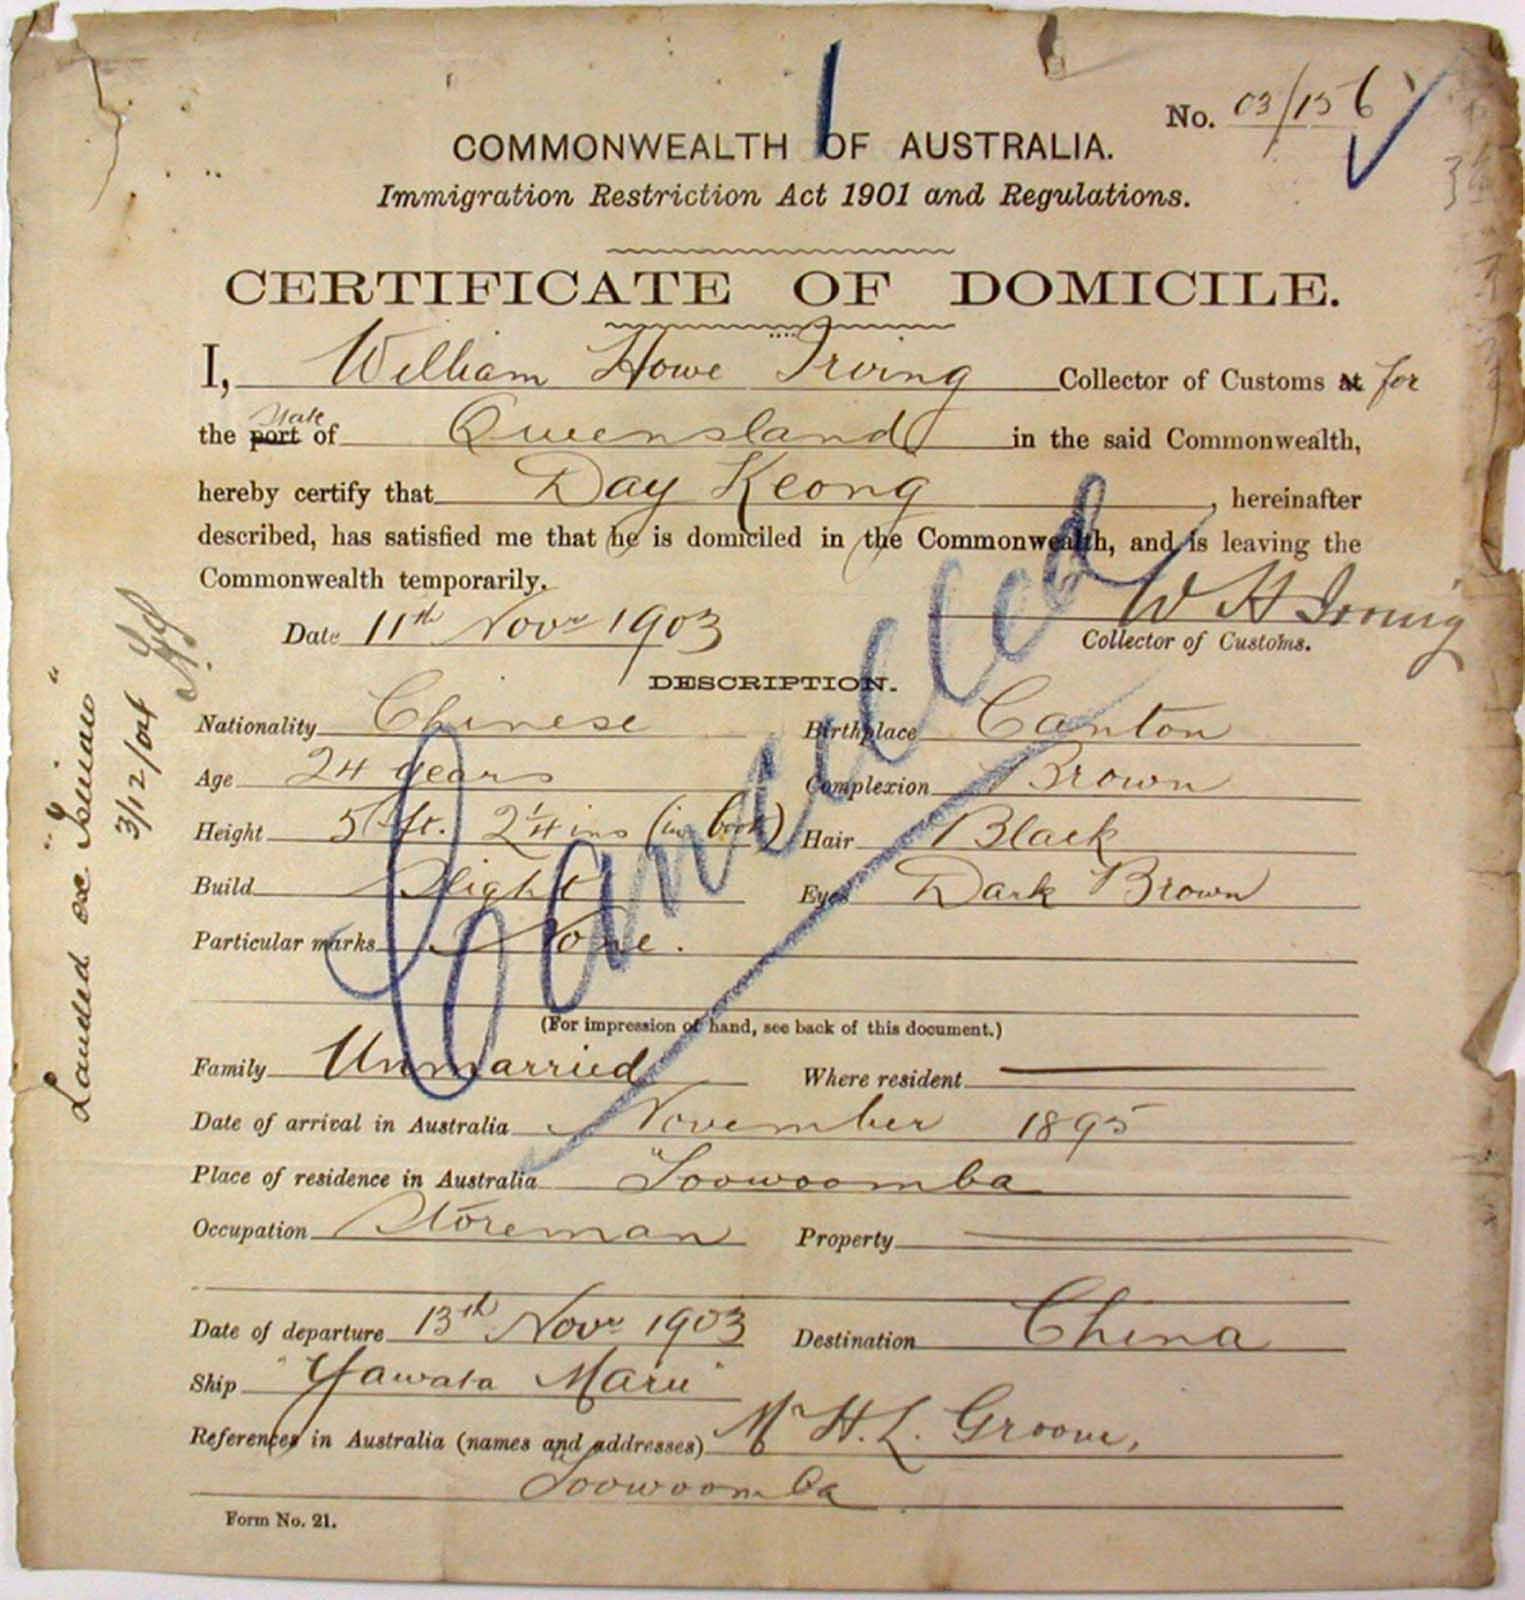 No. 03/156
COMMONWEALTH OF AUSTRALIA.
Immigration Restriction Act 1901 and Regulations.
CERTIFICATE OF DOMICILE.
I, William Howe Irving Collector of Customs at for
the port State of Queensland in the said Commonwealth,
hereby certify that Day Keong, hereinafter
described, has satisfied me that he is domiciled in the Commonwealth, and is leaving the
Commonwealth temporarily.
W H Irving
Date 11th Novr 1903 Collector of Customs.
DESCRIPTION.
Nationality Chinese Birthplace Canton
Age 24 years Complexion Brown
Height 5 ft. 2¼ ins (in boots) Hair Black
Build Slight Eyes Dark Brown
Particular marks None.
(For impression of hand, see back of this document.)
Family Unmarried Where resident
Date of arrival in Australia November 1895
Place of residence in Australia Toowoomba
Occupation Storeman Property
Date of departure 13th Novr 1903 Destination China
Ship "Yawata Maru"
References in Australia (names and addresses) Mr H. L. Groom,
Toowoomba
Form No. 21.
Cancelled
Landed ex
3/12/04